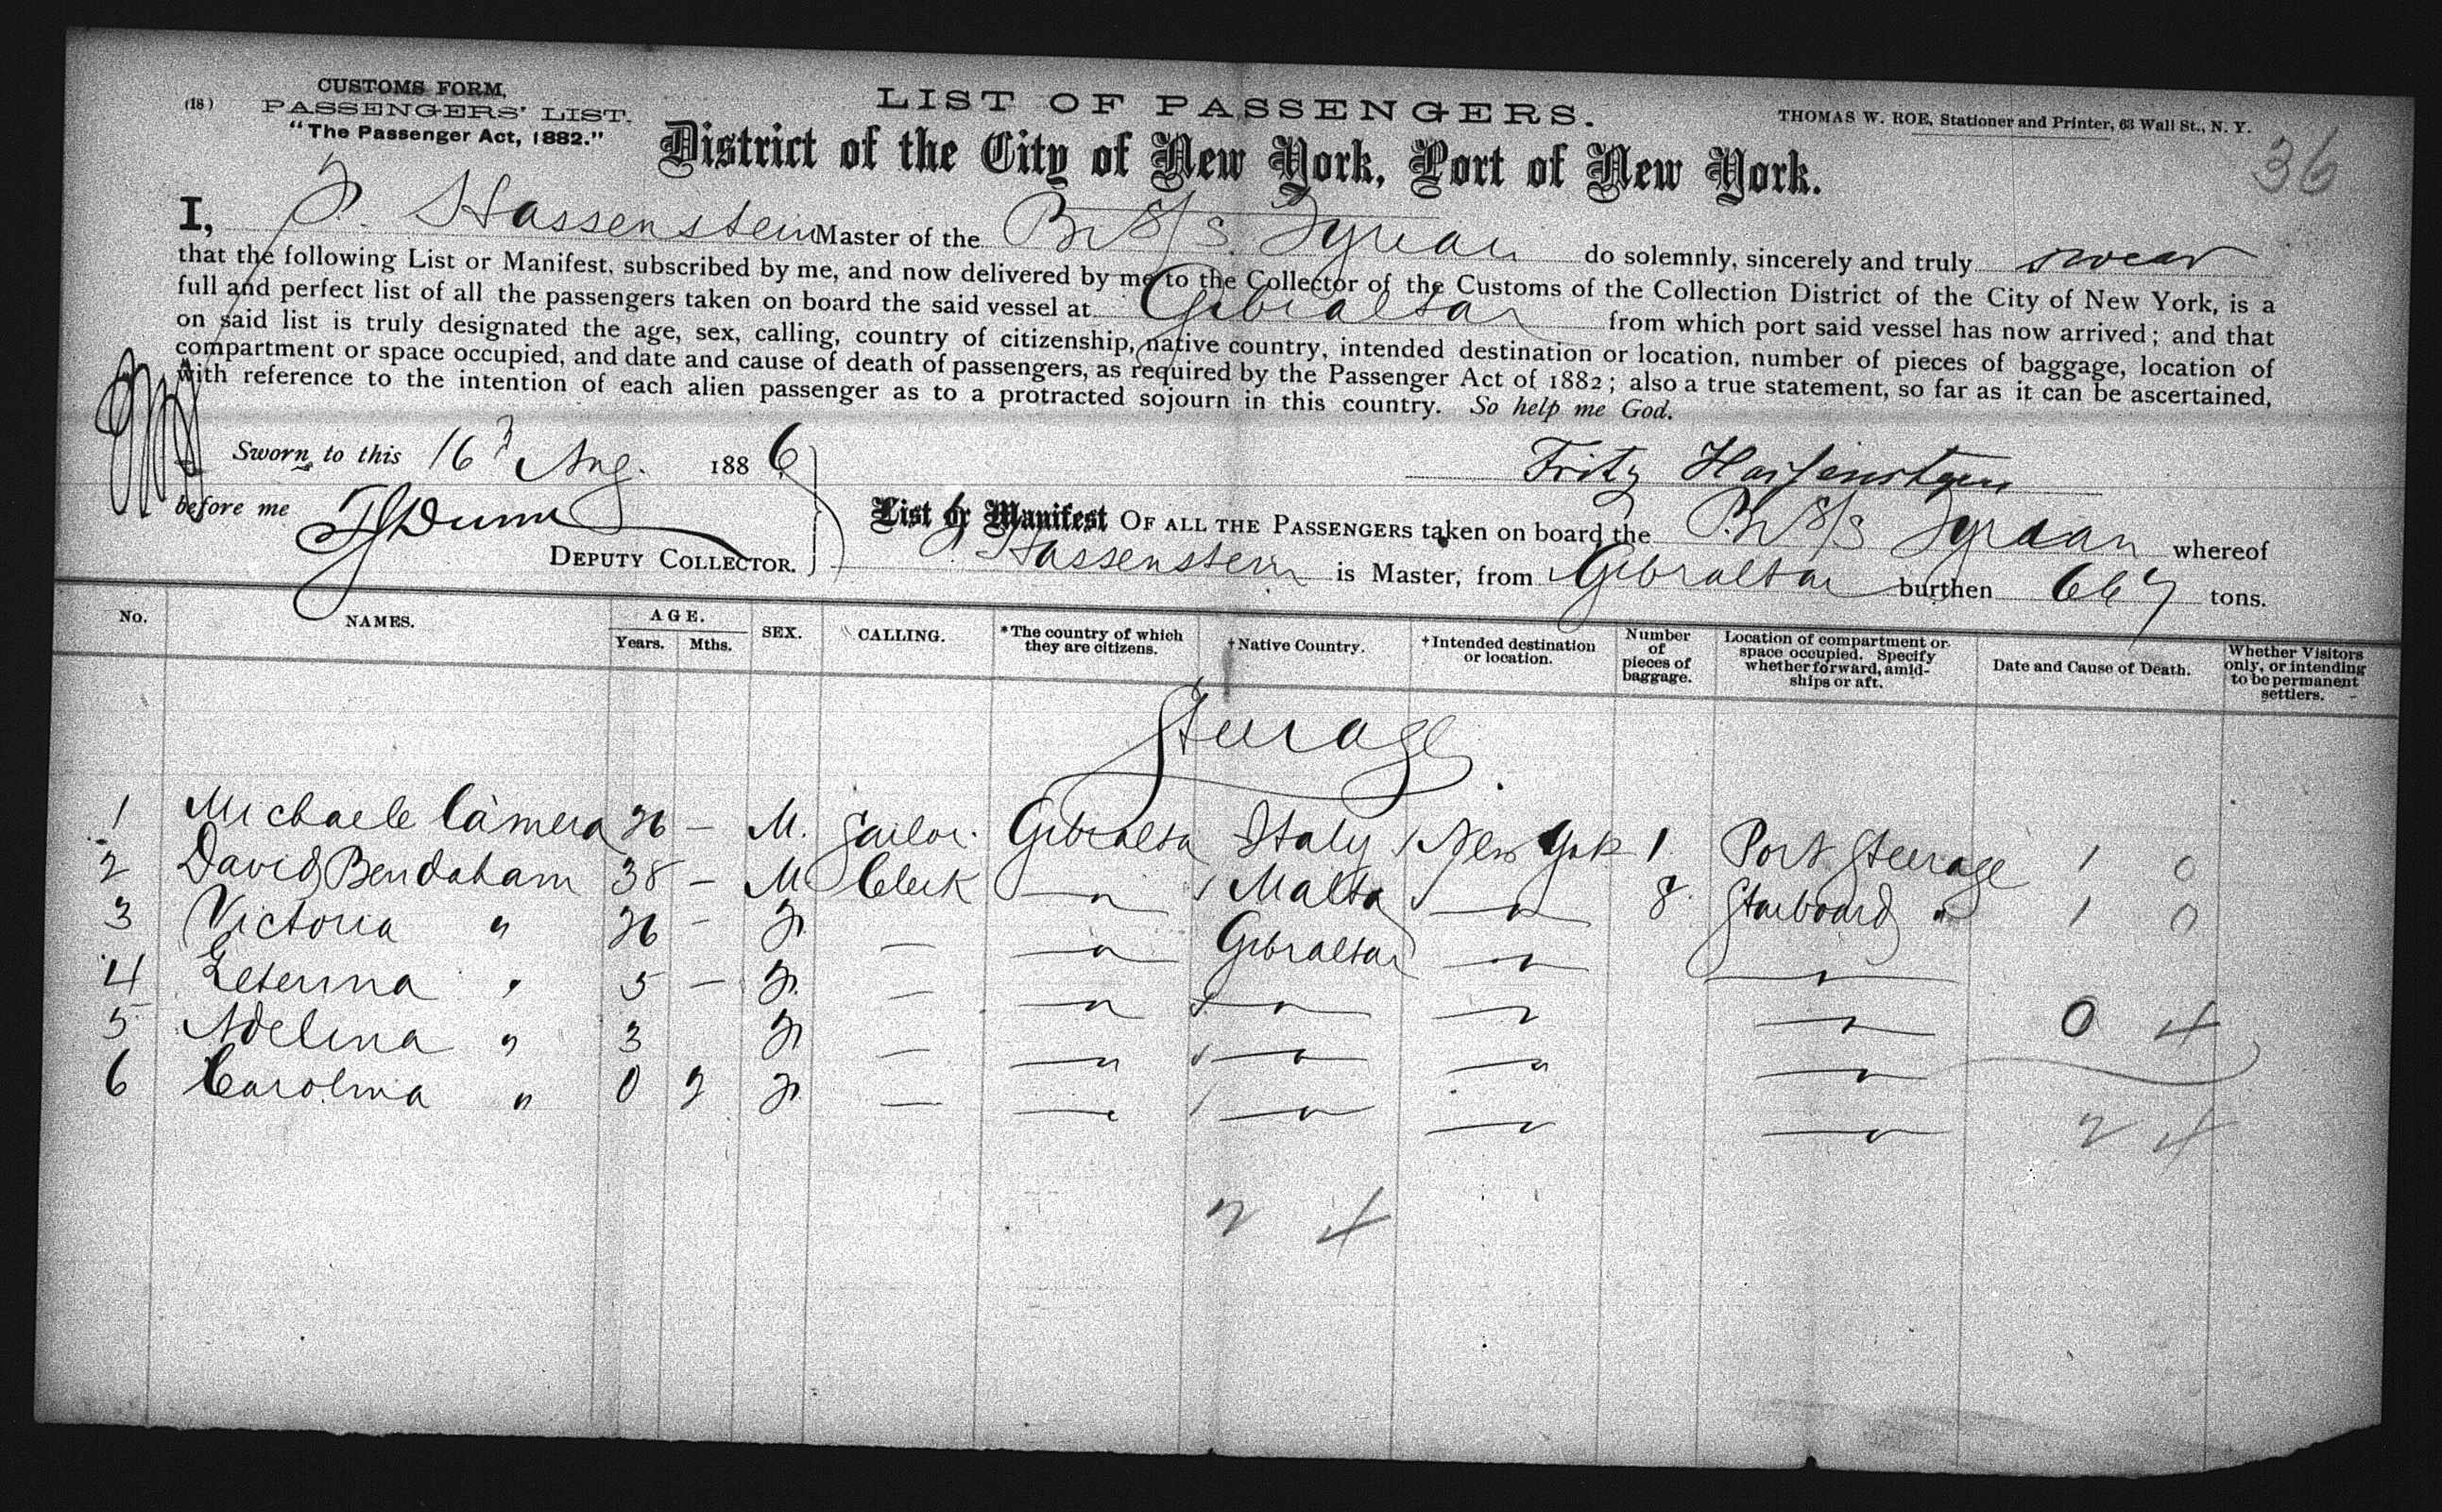 (18) CUSTOMS FORM,
PASSENGERS' LIST.
"The Passenger Act, 1882."
LIST OF PASSENGERS.
THOMAS W. ROE, Stationer and Printer, 63 Wall St., N. Y.
36
District of the City of New York, Port of New York.
I, F. Hassenstein Master of the Br S/S. Tyrian do solemnly, sincerely and truly swear
that the following List or Manifest, subscribed by me, and now delivered by me to the Collector of the Customs of the Collection District of the City of New York, is a
full and perfect list of all the passengers taken on board the said vessel at Gibraltar from which port said vessel has now arrived; and that
on said list is truly designated the age, sex, calling, country of citizenship, native country, intended destination or location, number of pieces of baggage, location of
compartment or space occupied, and date and cause of death of passengers, as required by the Passenger Act of 1882; also a true statement, so far as it can be ascertained,
with reference to the intention of each alien passenger as to a protracted sojourn in this country. So help me God.
Sworn to this 16 Aug. 1886
Fritz Hassenstein
before me Dunn
DEPUTY COLLECTOR.
List or Manifest OF ALL THE PASSENGERS taken on board the Br S/S Tyrian whereof
F Hassenstein is Master, from Gibraltar burthen 667 tons.
No. NAMES. AGE. Years. Mths. SEX. CALLING. *The country of which they are citizens. †Native Country. †Intended destination or location. Number of pieces of baggage. Location of compartment or space occupied. Specify whether forward, amidships or aft. Date and Cause of Death. Whether Visitors only, or intending to be permanent settlers.
Steerage
1 Michaele Cámera 26 — M. Sailor. Gibralta Italy / New York 1 Port Steerage 1 0
2 David Bendaham 38 — M Clerk — " — Malta — " — 8. Starboard " 1 0
3 Victoria " 26 — F — — " — Gibraltar — " — — " —
4 Zeterina " 5 — F. — — " — — " — — " — — " — 0 4
5 Adelina " 3 F — — " — — " — — " — — " —
6 Carolina " 0 2 F. — — " — — " — — " — — " — 2 4
2 4